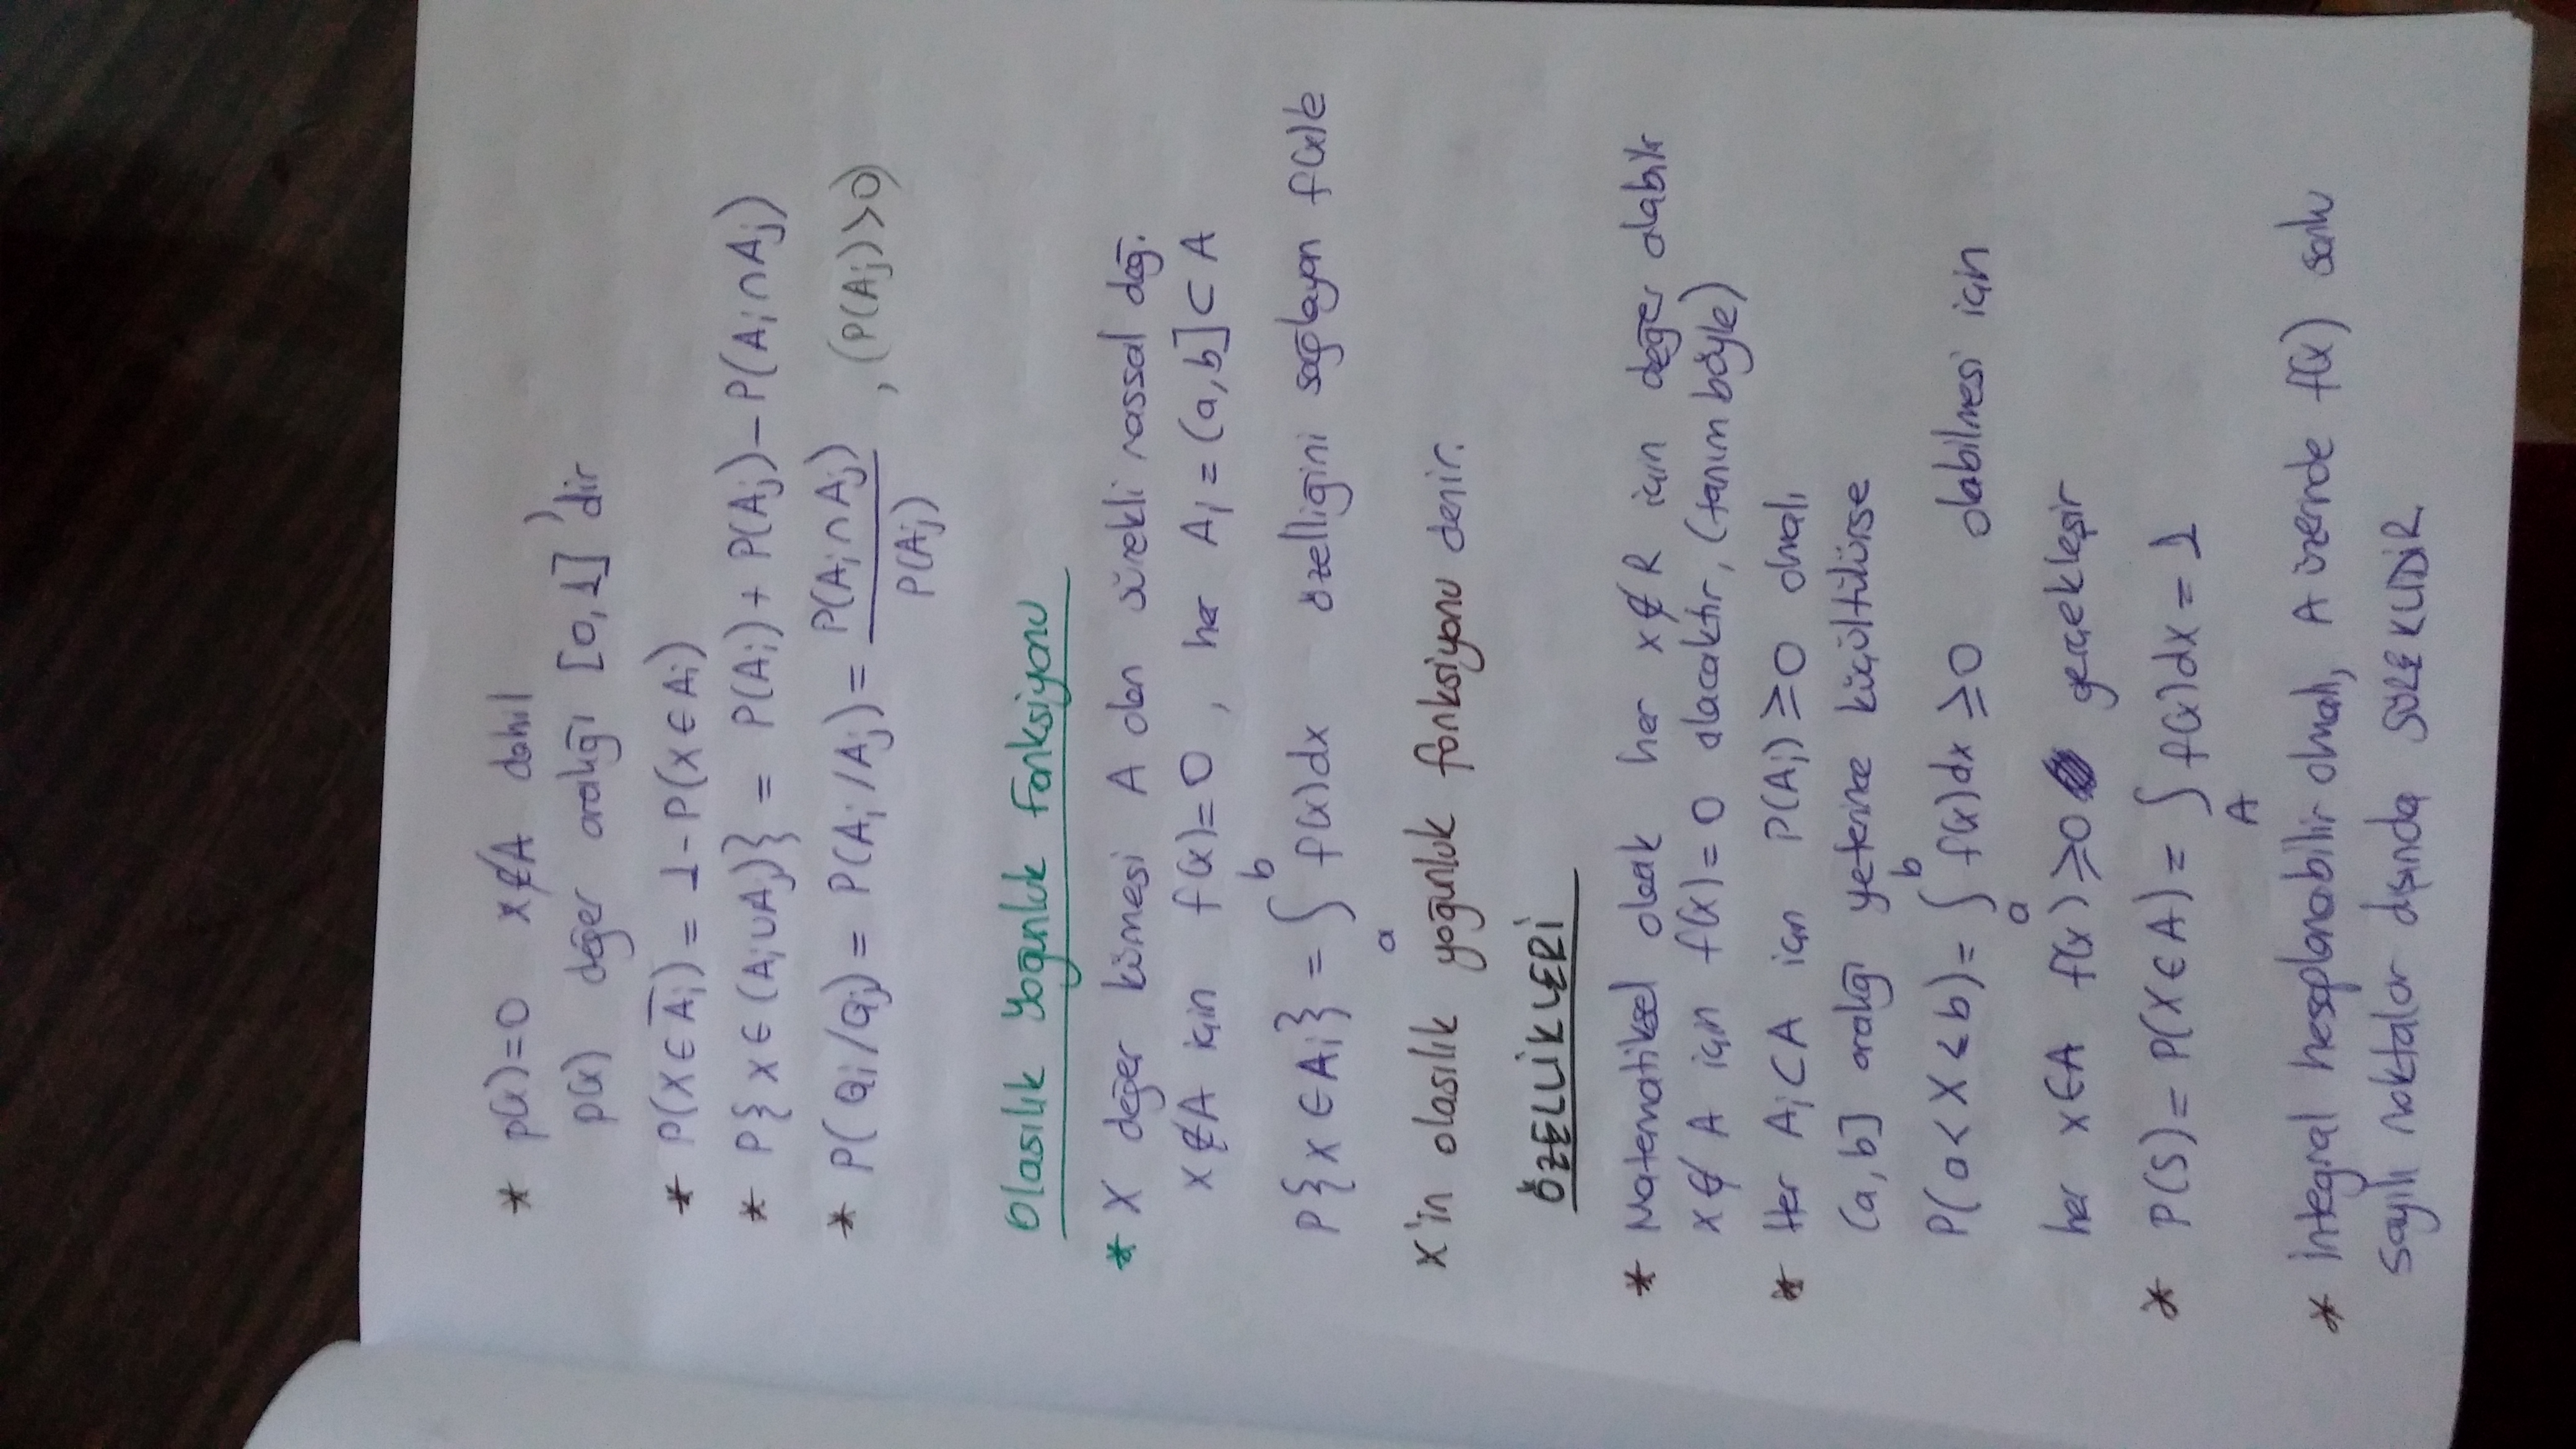 * p(x)=0 x∉A dahil
p(x) değer aralığı [0,1] 'dir
* P(X∈A̅ᵢ) = 1-P(X∈Aᵢ)
* P{x∈(Aᵢ∪Aⱼ)} = P(Aᵢ)+P(Aⱼ)-P(Aᵢ∩Aⱼ)
* P(Qᵢ/Qⱼ) = P(Aᵢ/Aⱼ) = P(Aᵢ∩Aⱼ)/P(Aⱼ) , (P(Aⱼ)>0)
Olasılık Yoğunluk Fonksiyonu
* X değer kümesi A olan sürekli rassal değ.
x∉A için f(x)=0 , her Aᵢ=(a,b]⊂A
P{x∈Aᵢ} = ∫ₐᵇ f(x)dx özelliğini sağlayan f(x)'e
X'in olasılık yoğunluk fonksiyonu denir.
ÖZELLİKLERİ
* Matematiksel olarak her x∉R için değer alabilir
x∉A için f(x)=0 olacaktır, (tanım böyle)
* Her Aᵢ⊂A için P(Aᵢ)≥0 olmalı
(a,b] aralığı yeterince küçültülürse
P(a<X≤b) = ∫ₐᵇ f(x)dx ≥0 olabilmesi için
her x∈A f(x)≥0 gerçekleşir
* P(S) = P(X∈A) = ∫_A f(x)dx = 1
* İntegral hesaplanabilir olmalı, A üzerinde f(x) sonlu
sayılı noktalar dışında SÜREKLİDİR